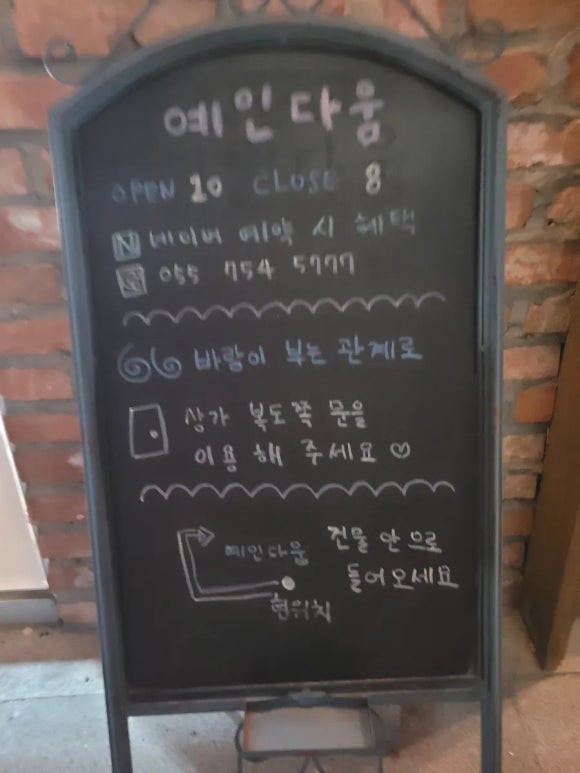 예인다움
OPEN 10 CLOSE 8
N 네이버 예약 시 혜택
055 754 5777
바람이 부는 관계로
상가 복도쪽 문을
이용 해 주세요 ♡
예인다움
건물 안으로
들어오세요
현위치